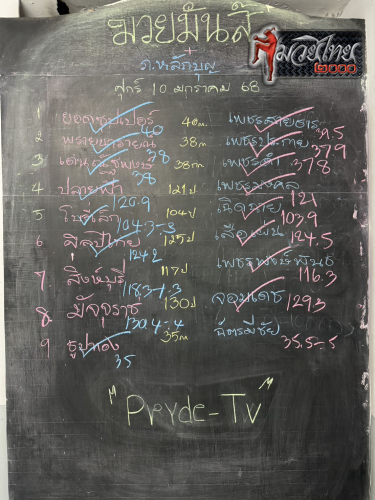 มวยมันส์
+
ภ.หลักบุญ
มวยไทย
2000
ศุกร์ 10 มกราคม 68
1 ยอดขุนปอร์ 40 40ก เพชรสายธาร 39.5
2 38 38ก เพชรประกาย 37.9
3 38 38ก เพชรดำ 37.8
4 ปลายฟ้า 120.9 121ป เพชรมงคล 121
5 โหน่เล็ก 104.3-.3 104ป เฉิดฉาย 103.9
6 ศิลป์ไทย 124.2 125ป เสือแผน 124.5
7 สิงห์บุรี 118.3-1.3 117ป เพชรพงษ์พันธ์ 116.3
8 มัจจุราช 130.4-.4 130ป จอมเดช 129.3
9 ธูปทอง 35 35ก ฉัตรมีชัย 35.5-.5
"Pryde-Tv"